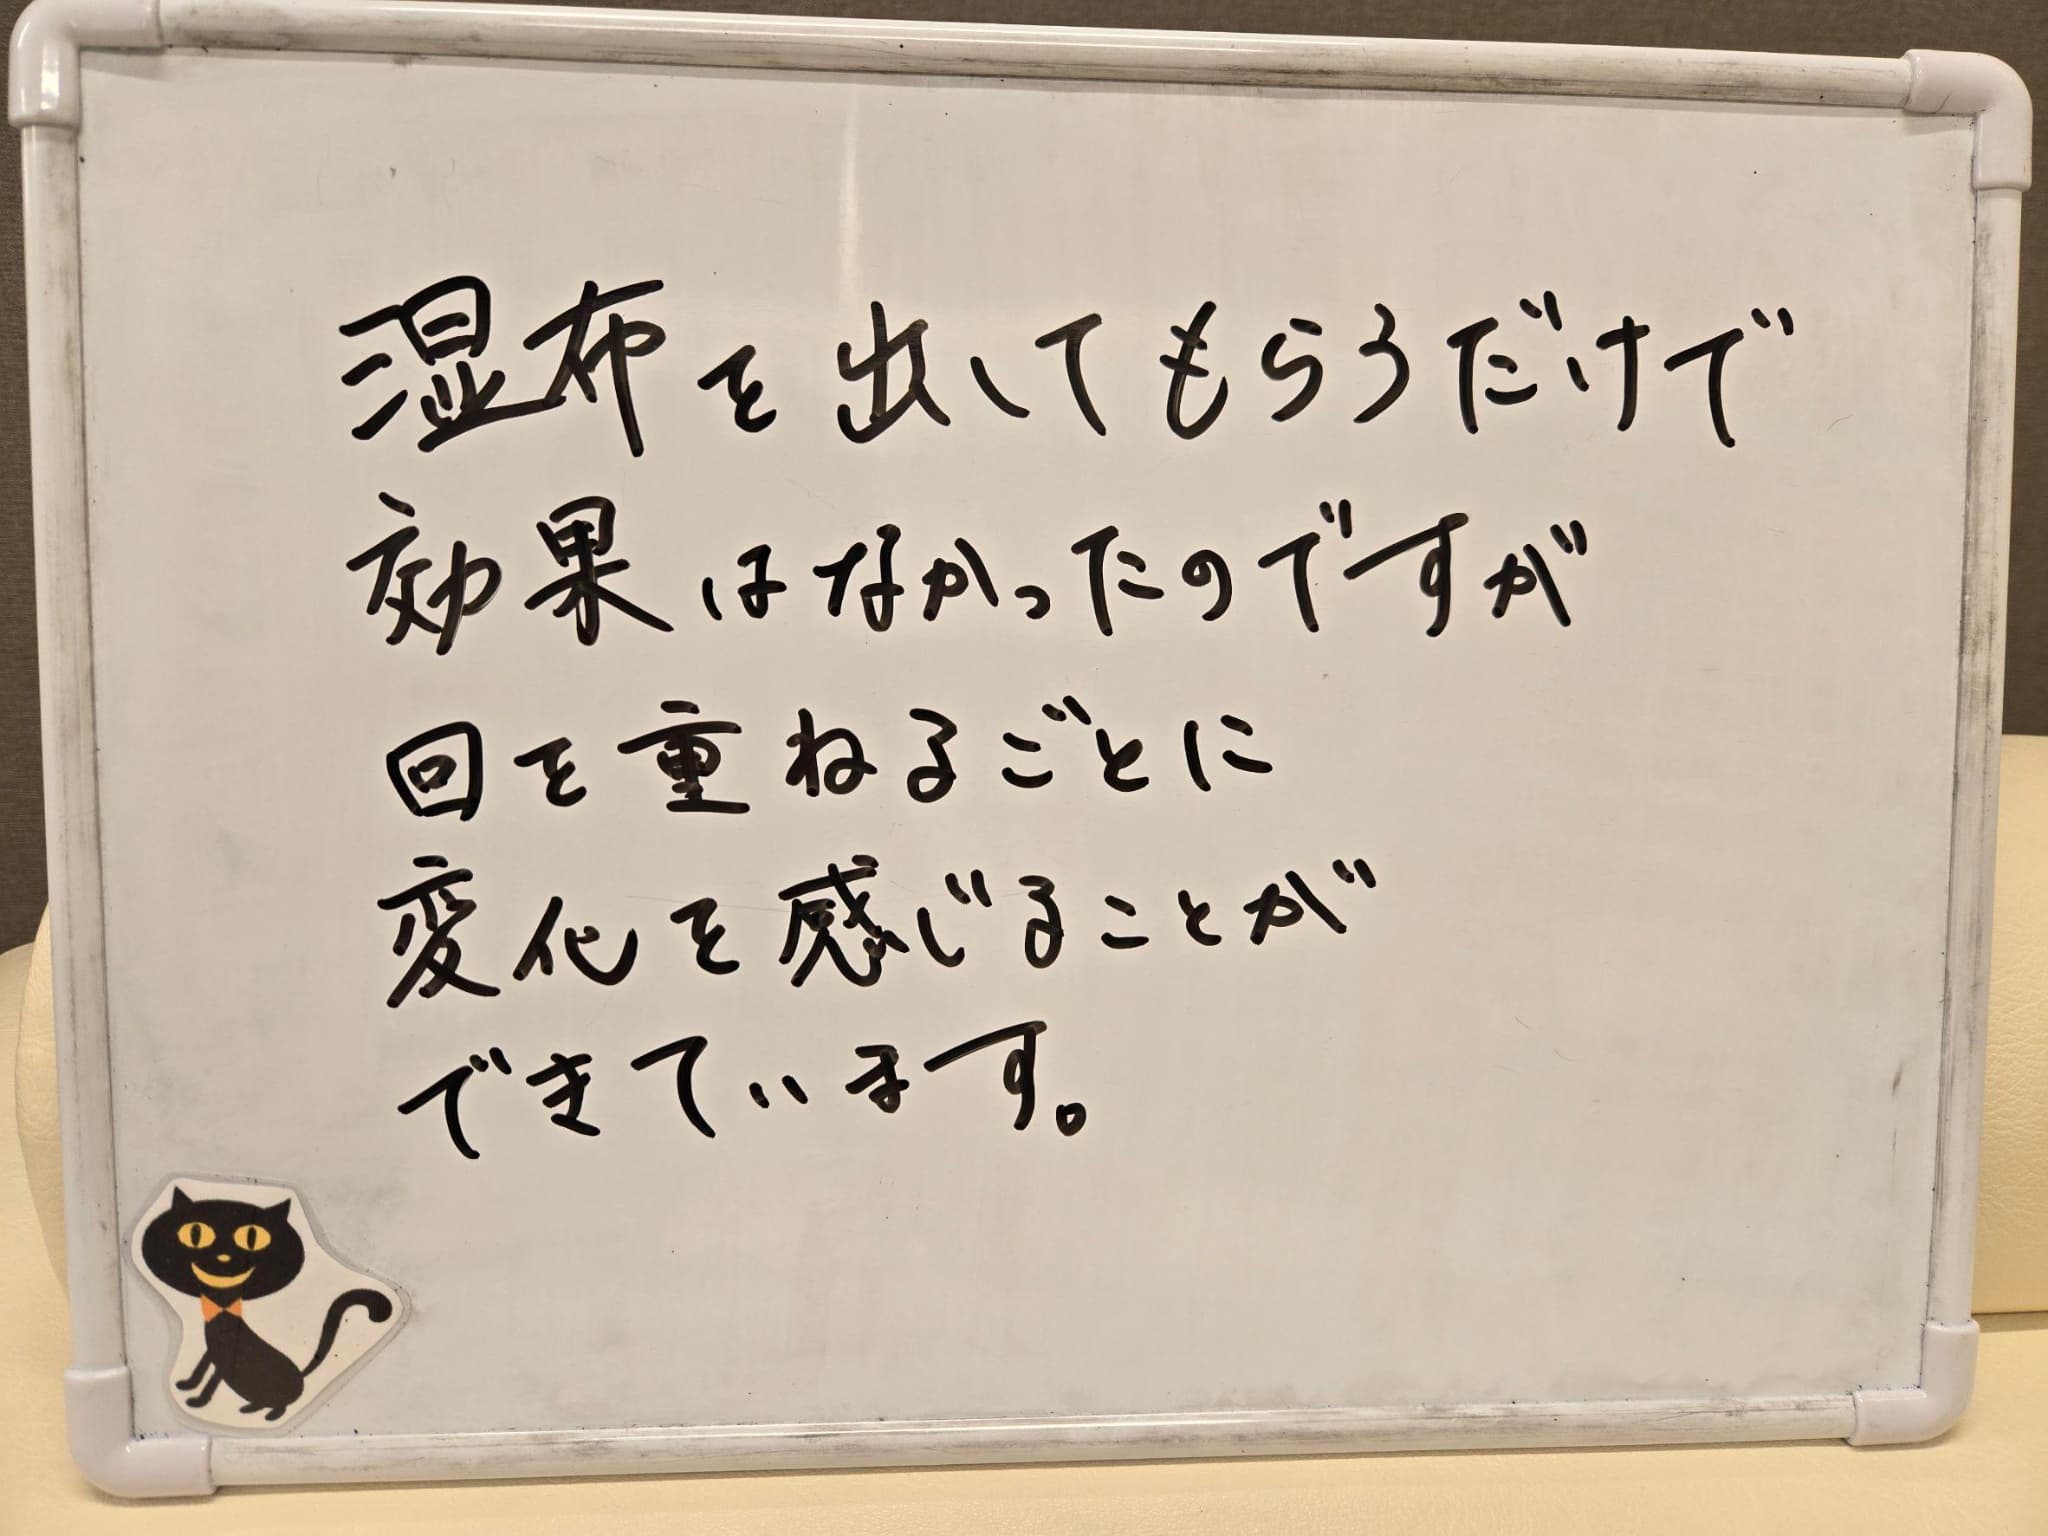 湿布を出してもらうだけで
効果はなかったのですが
回を重ねるごとに
変化を感じることが
できています。